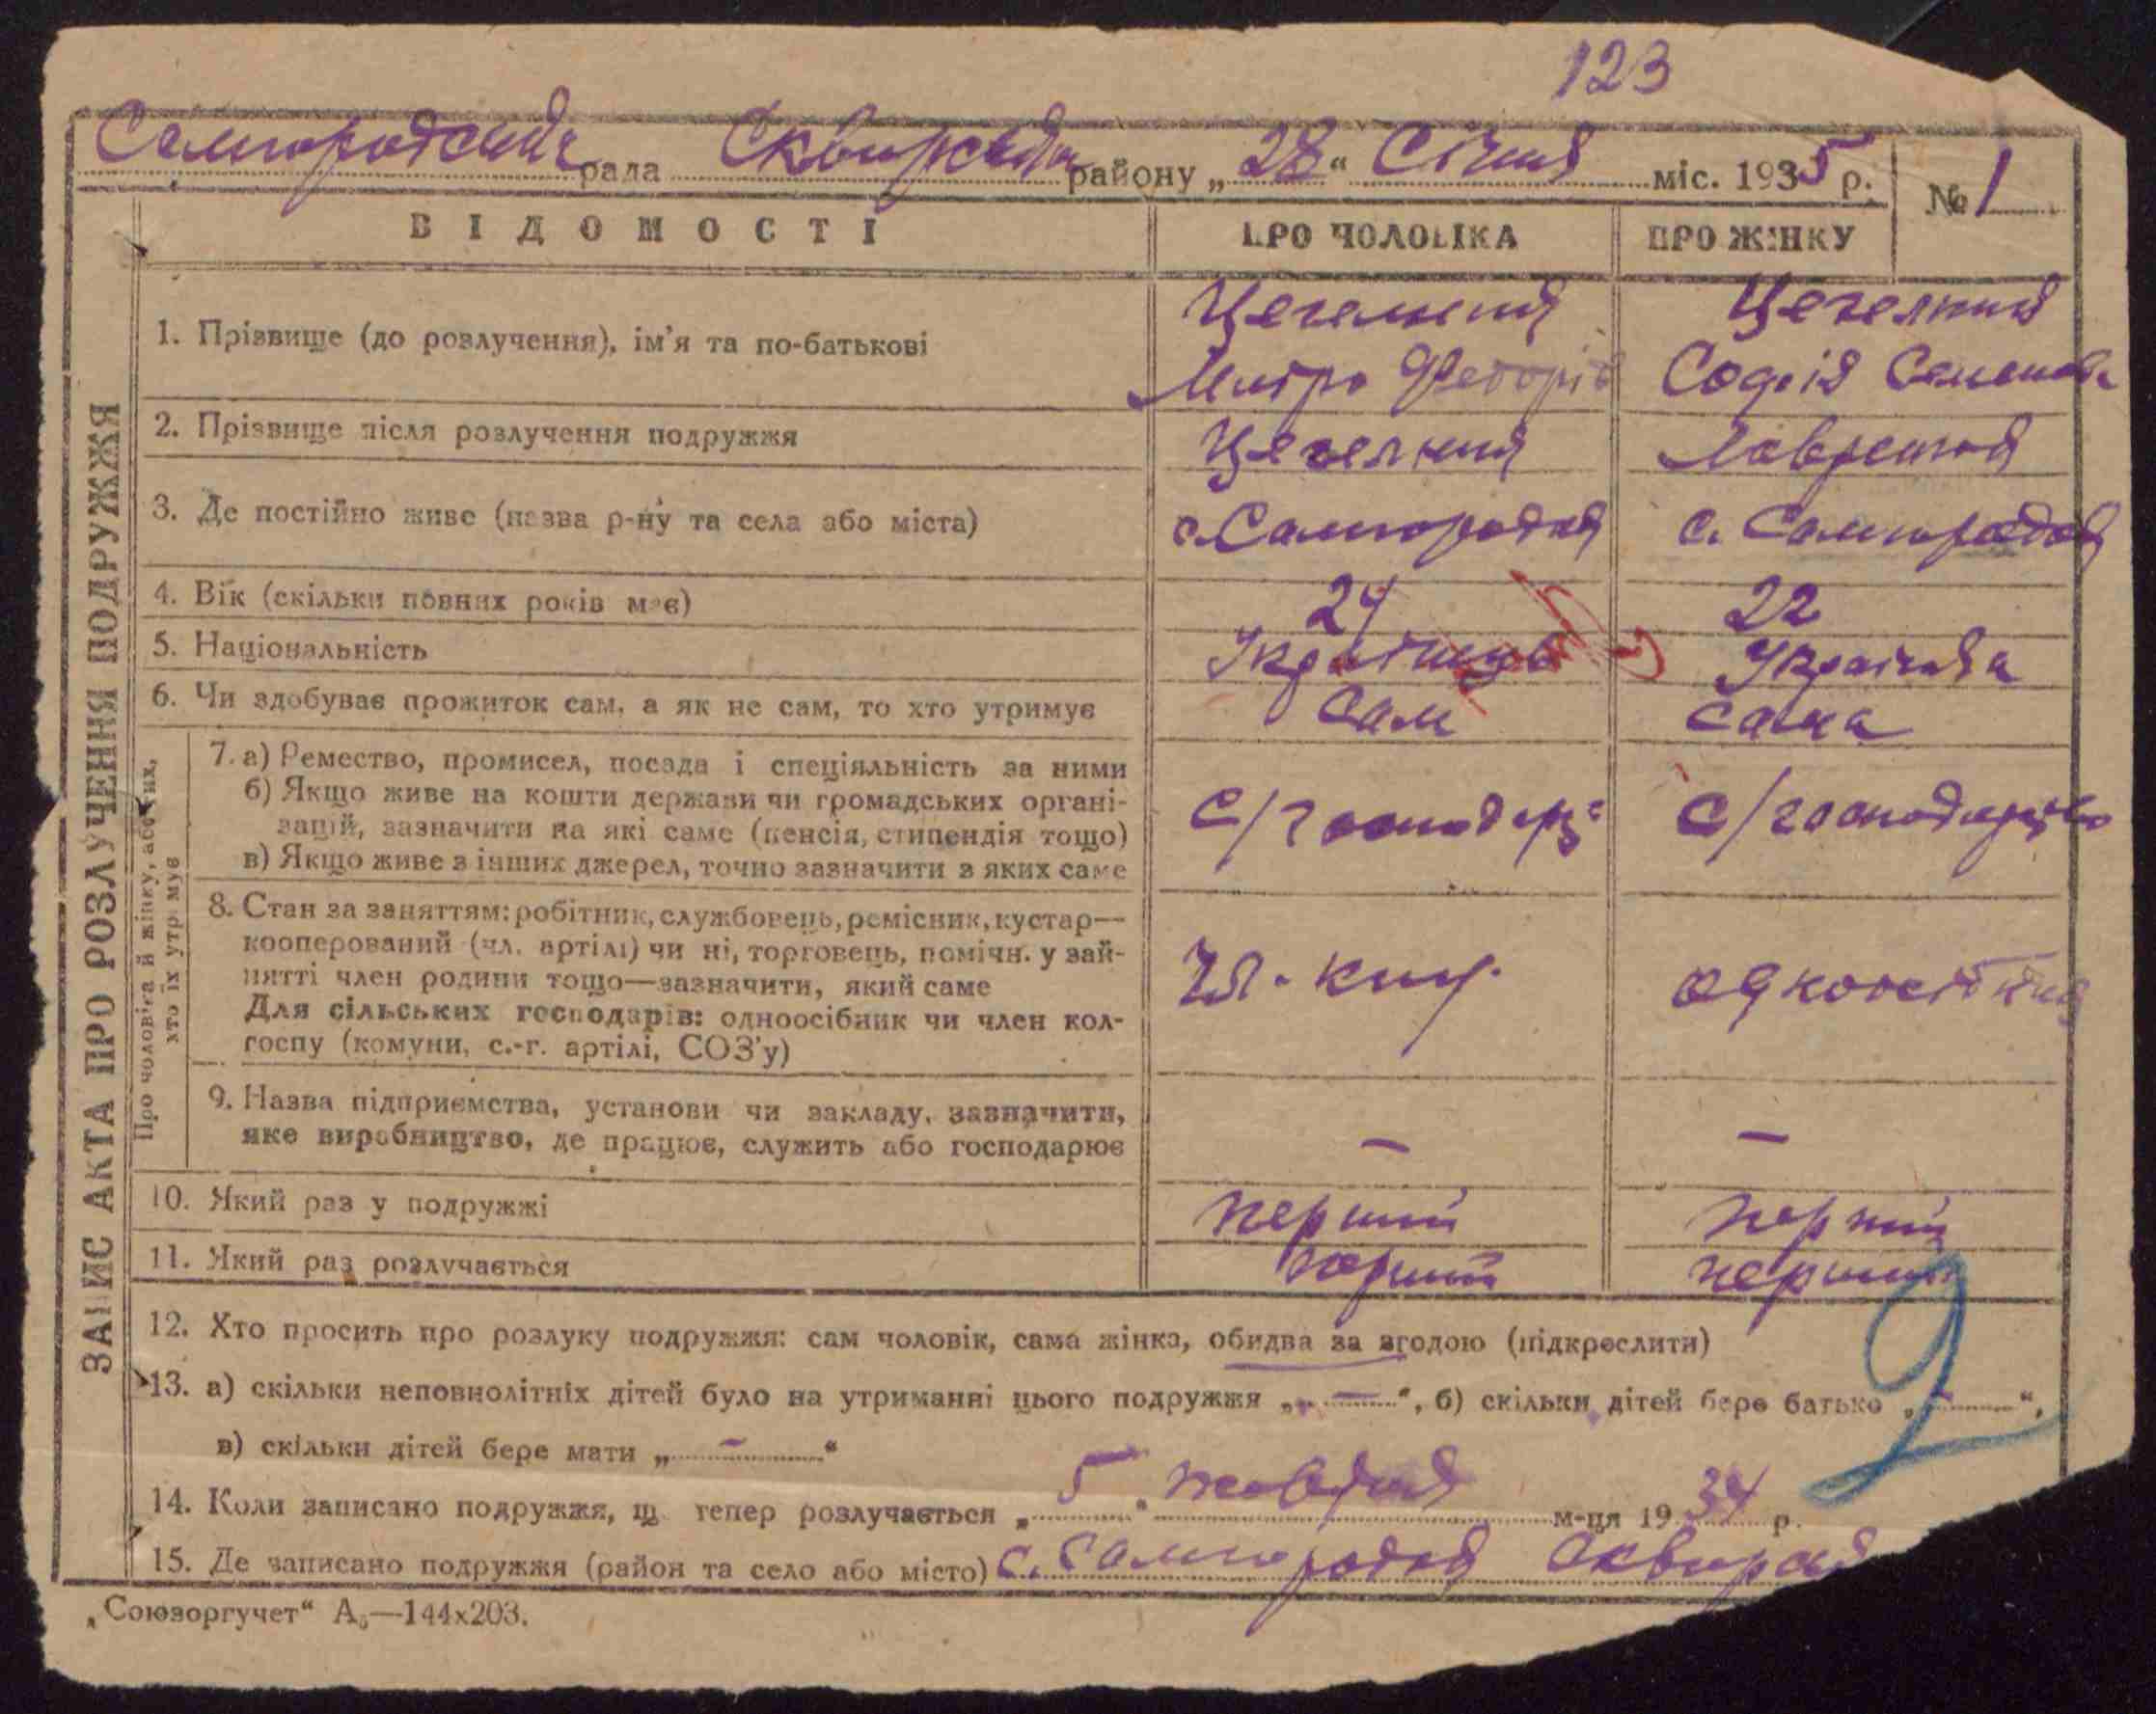 123
Самгородська рада Сквирська району „28“ Січня міс. 1935 р. № 1
ВІДОМОСТІ ПРО ЧОЛОВІКА ПРО ЖІНКУ
ЗАПИС АКТА ПРО РОЗЛУЧЕННЯ ПОДРУЖЖЯ
1. Прізвище (до розлучення), ім'я та по-батькові
Цегельний
Митро Федорів
Цегелний
Софія Семенов
2. Прізвище після розлучення подружжя Цегелний
3. Де постійно живе (назва р-ну та села або міста) с. Самгородка с. Самгородка
4. Вік (скільки повних років має) 24 22
5. Національність Українець Українка
6. Чи здобуває прожиток сам, а як не сам, то хто утримує Сам сама
Про чоловіка й жінку, або тих,
хто їх утримує
7. а) Ремество, промисел, посада і спеціяльність за ними
б) Якщо живе на кошти держави чи громадських органі-
зацій, зазначити на які саме (пенсія, стипендія тощо)
в) Якщо живе з інших джерел, точно зазначити з яких саме
С/господар С/господарство
8. Стан за заняттям: робітник, службовець, ремісник, кустар—
кооперований (чл. артілі) чи ні, торговець, помічн. у зай-
нятті член родини тощо—зазначити, який саме
Для сільських господарів: одноосібник чи член кол-
госпу (комуни, с.-г. артілі, СОЗ'у)
чл.
9. Назва підприємства, установи чи закладу, зазначити,
яке виробництво, де працює, служить або господарює
— —
10. Який раз у подружжі перший перший
11. Який раз розлучається перший перший
12. Хто просить про розлуку подружжя: сам чоловік, сама жінка, обидва за згодою (підкреслити)
13. а) скільки неповнолітніх дітей було на утриманні цього подружжя „—“, б) скільки дітей бере батько „—“,
в) скільки дітей бере мати „—“
2
14. Коли записано подружжя, що тепер розлучається „5“ жовтня м-ця 1934 р.
15. Де записано подружжя (район та село або місто) с. Самгородка Сквирськ
„Союзоргучет“ А₅—144х203.